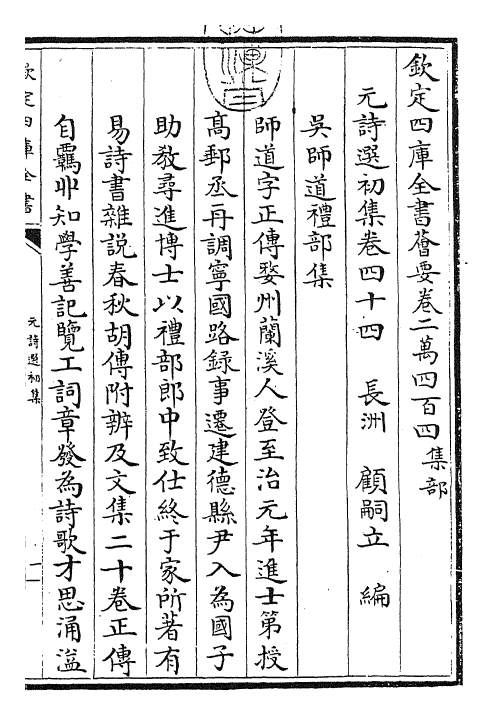 欽定四庫全書薈要卷二萬四百四集部
元詩選初集卷四十四　長洲　顧嗣立　編
吳師道禮部集
師道字正傳婺州蘭溪人登至治元年進士第授
高郵丞再調寧國路録事遷建德縣尹入為國子
助教尋進博士以禮部郎中致仕終于家所著有
易詩書雜説春秋胡傳附辨及文集二十卷正傳
自覊丱知學善記覽工詞章發為詩歌才思涌溢
欽定四庫全書
元詩選初集
一